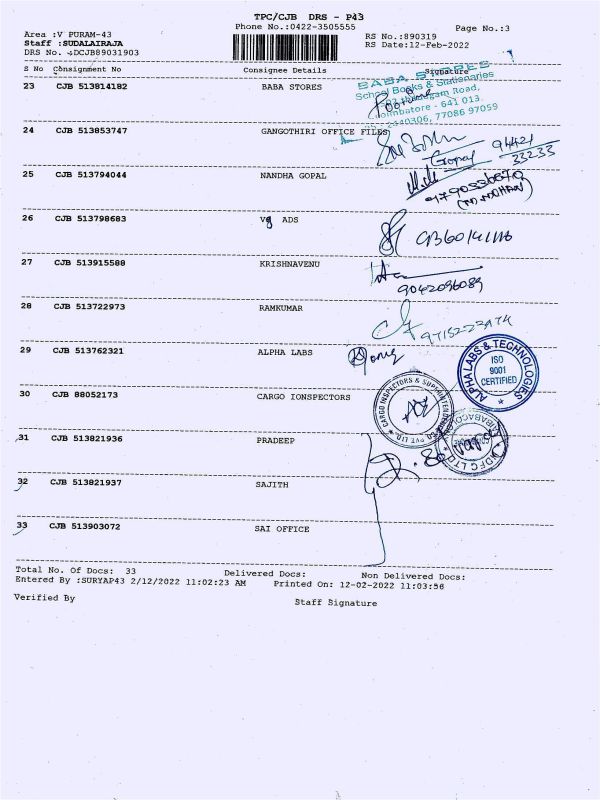 TPC/CJB DRS - P43
Phone No.:0422-3505555
Page No.:3
Area :V PURAM-43
RS No.:890319
Staff :SUDALAIRAJA
RS Date:12-Feb-2022
DRS No. :DCJB89031903
S No Consignment No Consignee Details Signature
BABA STORES
School Books & Stationaries
Road,
Coimbatore - 641 013.
77086 97059
23 CJB 513814182 BABA STORES
24 CJB 513853747 GANGOTHIRI OFFICE FILES
Gopal
94421
33233
25 CJB 513794044 NANDHA GOPAL
26 CJB 513798683 ADS
27 CJB 513915588 KRISHNAVENU
9042096089
28 CJB 513722973 RAMKUMAR
29 CJB 513762321 ALPHA LABS
ALPHA LABS & TECHNOLOGIES
ISO
9001
CERTIFIED
30 CJB 88052173 CARGO IONSPECTORS
CARGO INSPECTORS & SUPERINTENDENCE CO PVT LTD
31 CJB 513821936 PRADEEP
32 CJB 513821937 SAJITH
33 CJB 513903072 SAI OFFICE
Total No. Of Docs: 33 Delivered Docs: Non Delivered Docs:
Entered By :SURYAP43 2/12/2022 11:02:23 AM Printed On: 12-02-2022 11:03:56
Verified By Staff Signature